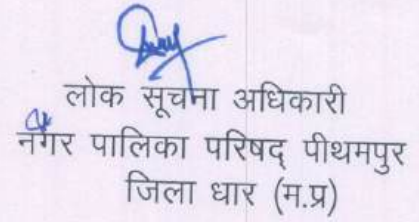 लोक सूचना अधिकारी
नगर पालिका परिषद् पीथमपुर
जिला धार (म.प्र)